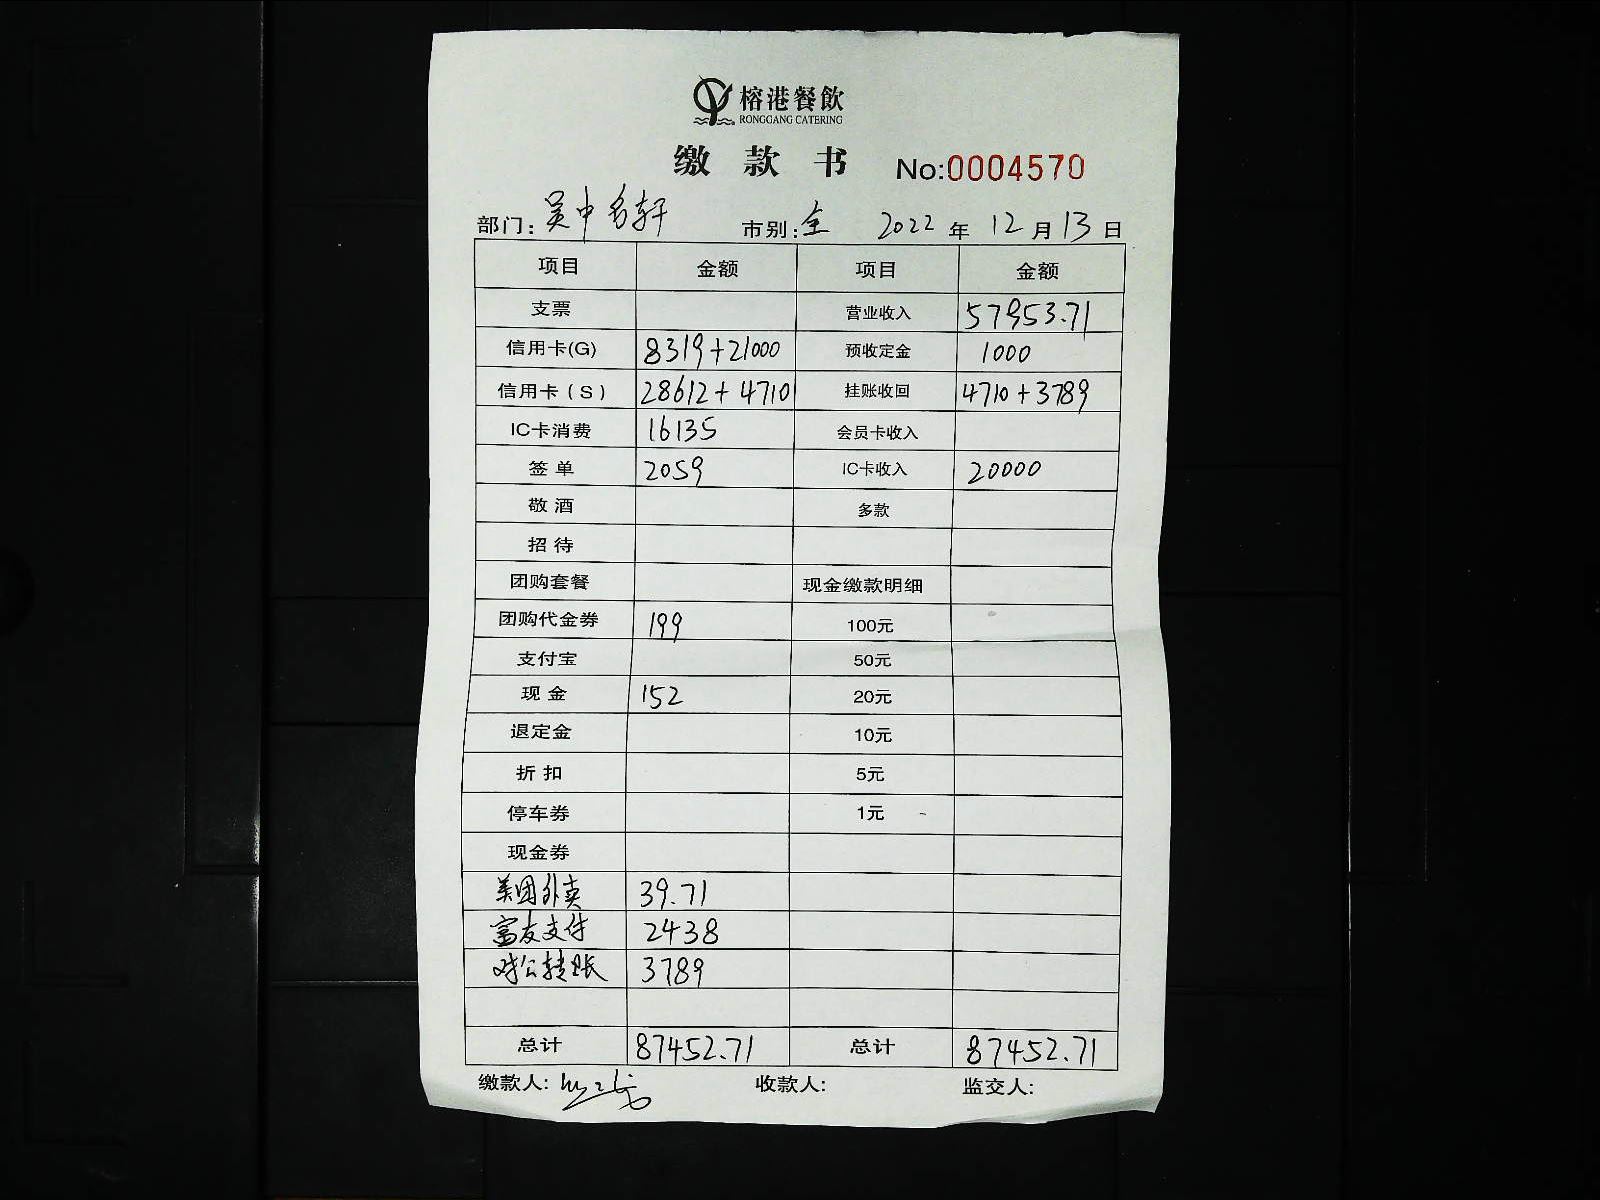 榕港餐飲
RONGGANG CATERING
缴款书 No:0004570
部门: 吴中名轩 市别: 全 2022年12月13日
项目 金额 项目 金额
支票 营业收入 57953.71
信用卡(G) 8319+21000 预收定金 1000
信用卡(S) 28612+4710 挂账收回 4710+3789
IC卡消费 16135 会员卡收入
签单 2059 IC卡收入 20000
敬酒 多款
招待
团购套餐 现金缴款明细
团购代金券 199 100元
支付宝 50元
现金 152 20元
退定金 10元
折扣 5元
停车券 1元
现金券
美团外卖 39.71
富友支付 2438
对公转账 3789
总计 87452.71 总计 87452.71
缴款人: 收款人: 监交人: